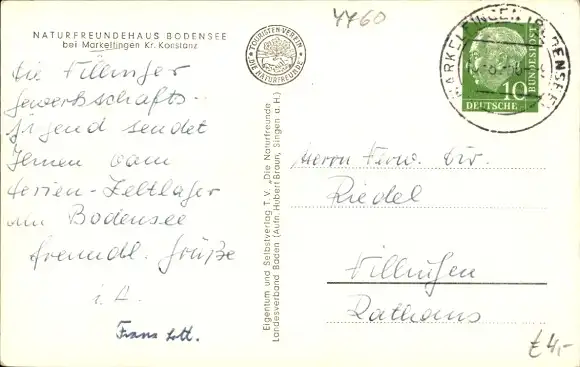 NATURFREUNDEHAUS BODENSEE
bei Markelfingen Kr. Konstanz
TOURISTEN-VEREIN
DIE NATURFREUNDE
4760
MARKELFINGEN (BODENSEE)
DEUTSCHE
BUNDESPOST
10
Die Villinger
Gewerkschafts-
jugend sendet
Ihnen vom
Ferien-Zeltlager
am Bodensee
freundl. Grüße
i. A.
Eigentum und Selbstverlag T.V. „Die Naturfreunde
Landesverband Baden (Aufn. Hubert Braun, Singen a. H.)
Herrn Verw. Dir.
Riedel
Villingen
Rathaus
£ 4,-